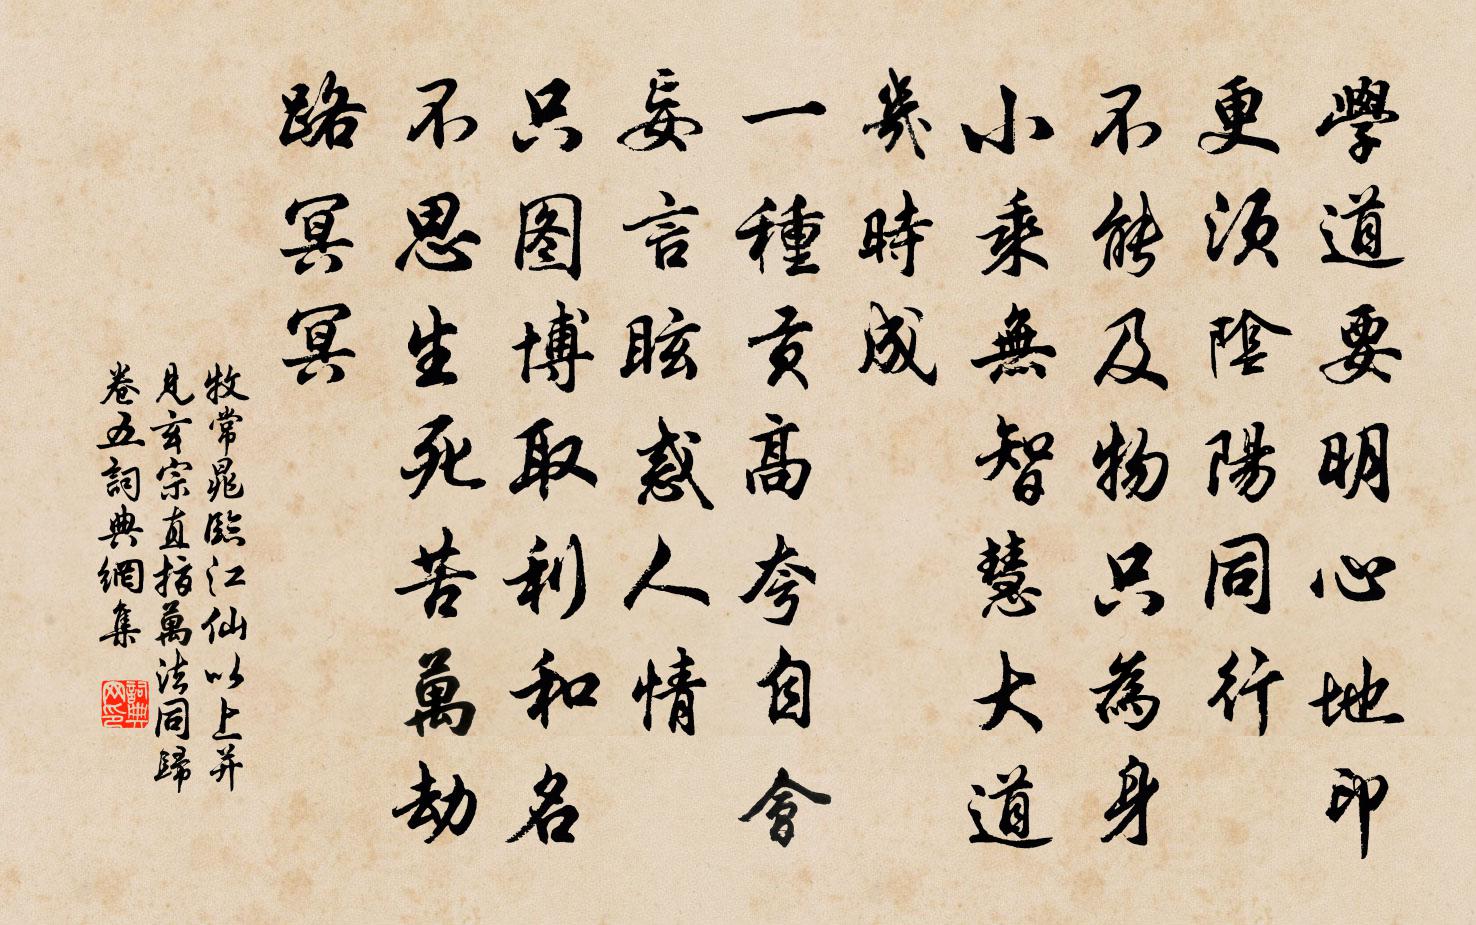 學道要明心地印
更須陰陽同行
不能及物只為身
小乘無智慧大道
幾時成
一種貢高夸自會
妄言眩惑人情
只图博取利和名
不思生死苦萬劫
路冥冥
牧常晁臨江仙以上并
見玄宗直指萬法同歸
卷五詞典網集
詞典网印